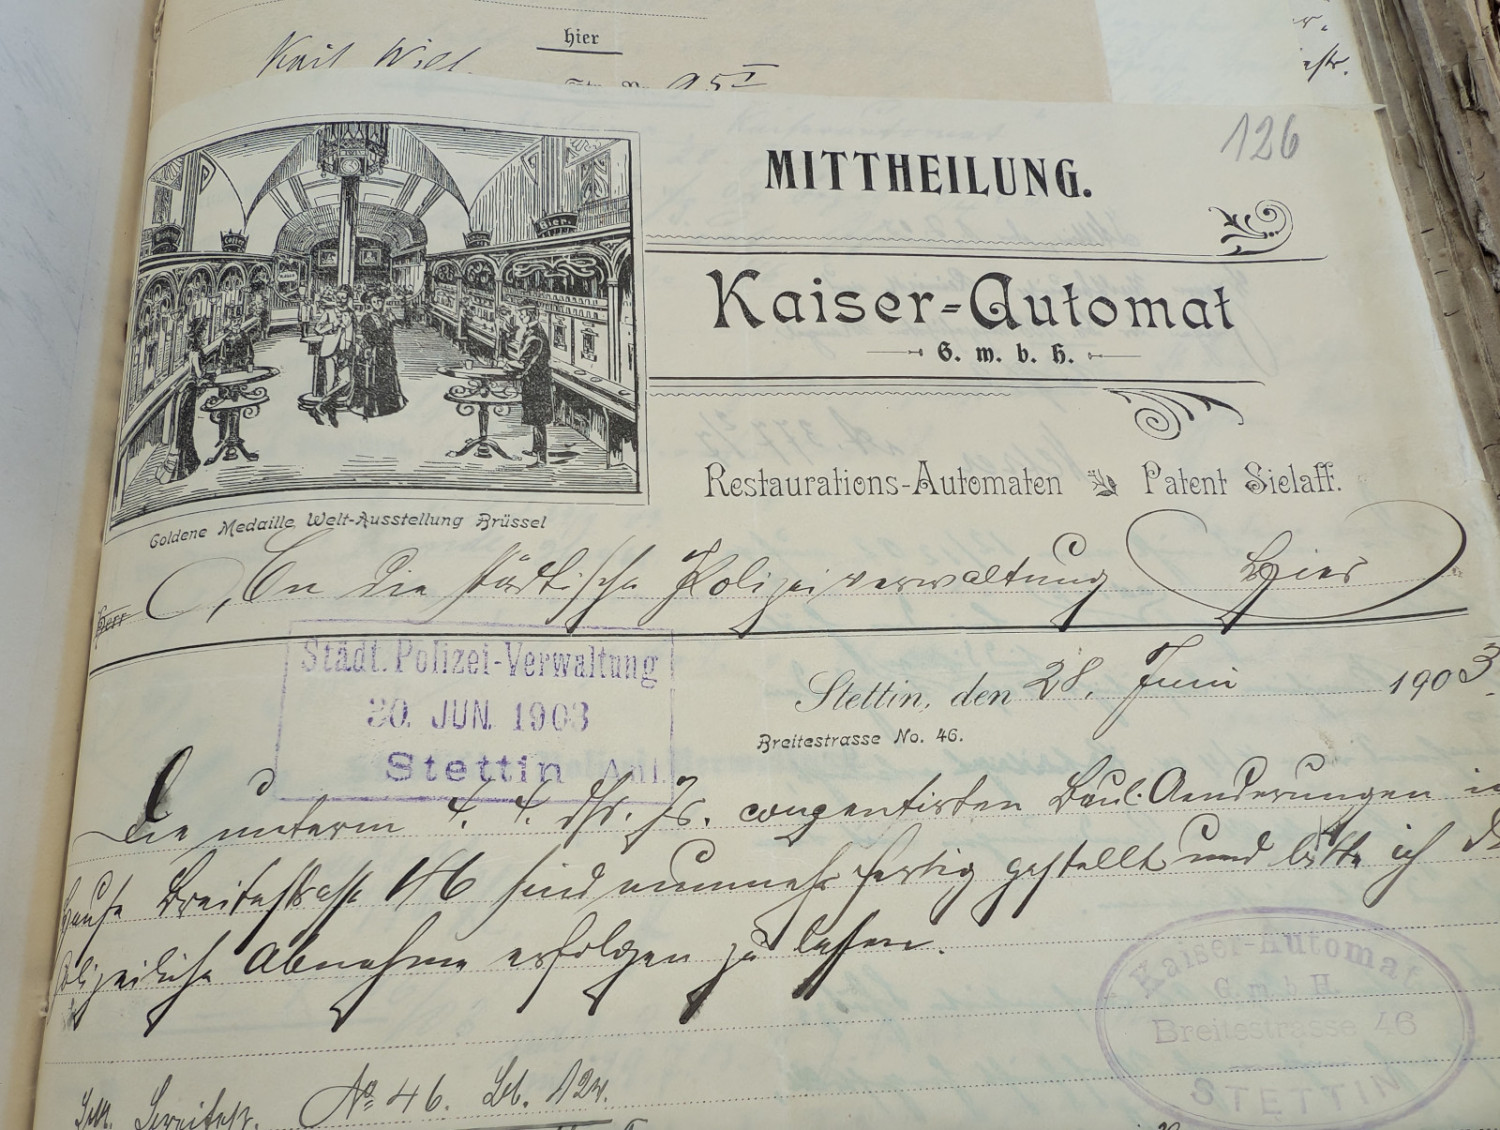 hier
Karl Will
95 I
126
MITTHEILUNG.
Bier.
Kaiser-Automat
G. m. b. H.
Restaurations-Automaten Patent Sielaff.
Goldene Medaille Welt-Ausstellung Brüssel
Herr An die städtische Polizeiverwaltung Hier
Städt. Polizei-Verwaltung
30. JUN. 1903
Stettin Amt.
Stettin, den 28. Juni 1903.
Breitestrasse No. 46.
Die unterm ds. Js. Baul. Aenderungen i
Hause Breitestrasse 46 sind nunmehr fertig gestellt und bitte ich d
polizeiliche Abnahme erfolgen zu lassen.
Kaiser-Automat
G. m b H.
Breitestrasse 46
STETTIN
Breitestr. No 46. Bd.